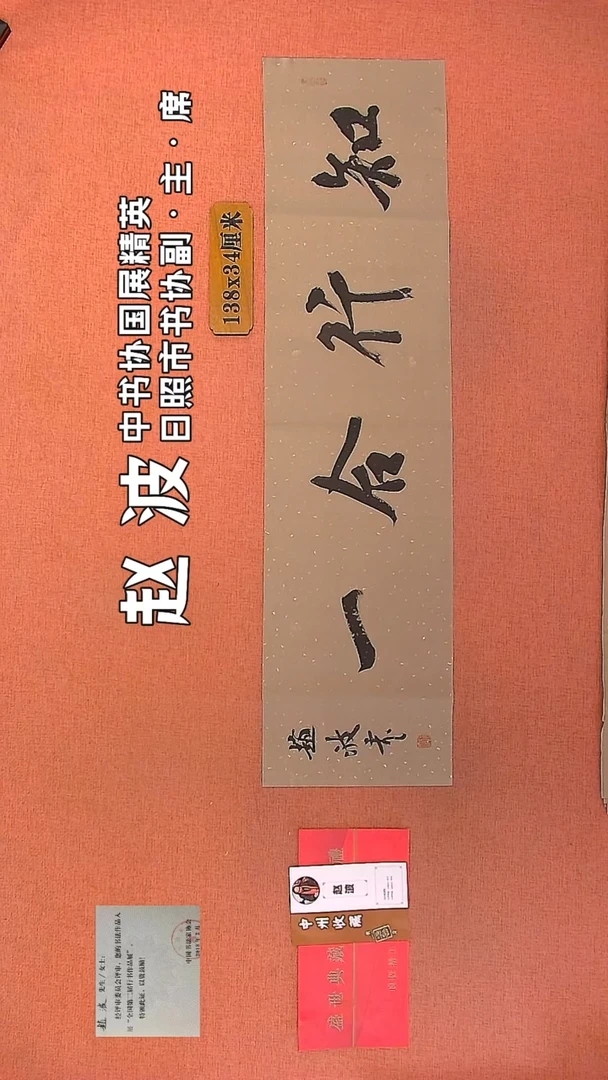 赵波
中书协国展精英
日照市书协副·主·席
138x34厘米
知行合一
趙波书
赵波 先生/女士：
经评审委员会评审，您的书法作品入
展“全国第二届行书作品展”。
特颁此证，以资鼓励！
中国书法家协会
赵波
中州收藏
盛世典藏